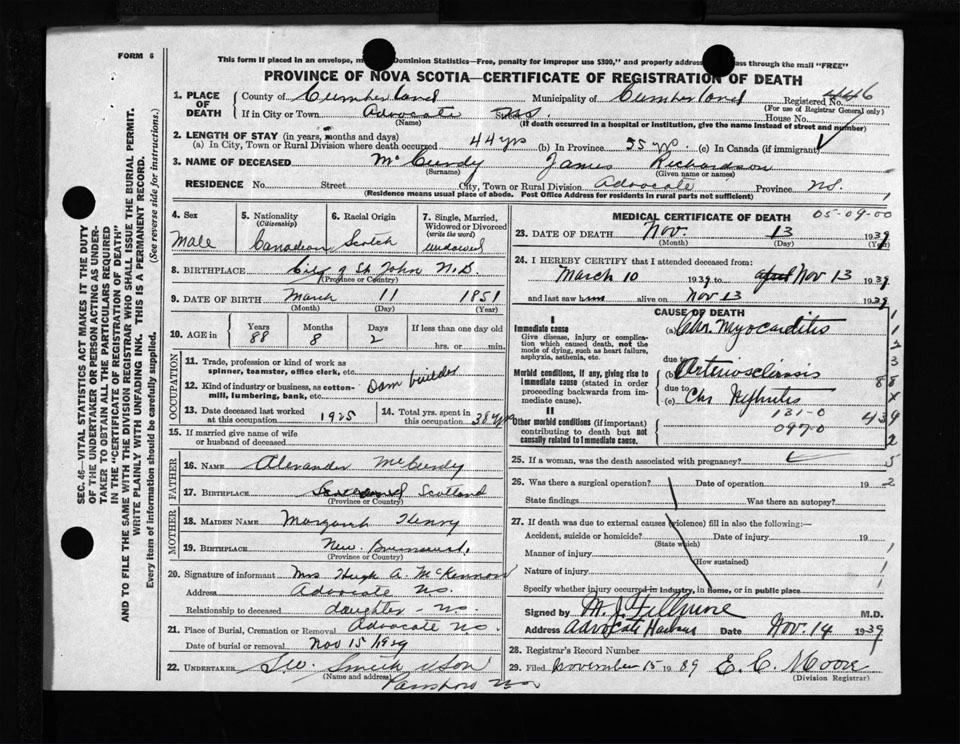 FORM 6
This form if placed in an envelope, Dominion Statistics—Free, penalty for improper use $300," and properly through the mail "FREE"
PROVINCE OF NOVA SCOTIA—CERTIFICATE OF REGISTRATION OF DEATH
1. PLACE OF DEATH
County of Cumberland Municipality of Cumberland Registered No. 446
(For use of Registrar General only)
If in City or Town Advocate NS. House No.
(Name) (If death occurred in a hospital or institution, give the name instead of street and number)
2. LENGTH OF STAY (in years, months and days)
(a) In City, Town or Rural Division where death occurred 44 yrs (b) In Province 55 yrs. (c) In Canada (if immigrant)
3. NAME OF DECEASED McCurdy James Richardson
(Surname) (Given name or names)
RESIDENCE No. Street City, Town or Rural Division Advocate Province NS.
(Residence means usual place of abode. Post Office Address for residents in rural parts not sufficient)
4. Sex Male
5. Nationality (Citizenship) Canadian
6. Racial Origin Scotch
7. Single, Married, Widowed or Divorced (write the word) widowed
8. BIRTHPLACE City of St John N.B.
(Province or Country)
9. DATE OF BIRTH March 11 1851
(Month) (Day) (Year)
10. AGE in Years Months Days If less than one day old
88 8 2 hrs. or min.
OCCUPATION
11. Trade, profession or kind of work as spinner, teamster, office clerk, etc.
12. Kind of industry or business, as cotton-mill, lumbering, bank, etc. Dam builder
13. Date deceased last worked at this occupation 1925
14. Total yrs. spent in this occupation 38 yrs
15. If married give name of wife or husband of deceased
FATHER
16. NAME Alexander McCurdy
17. BIRTHPLACE Scotland
(Province or Country)
MOTHER
18. MAIDEN NAME Margaret Henry
19. BIRTHPLACE New Brunswick
(Province or Country)
20. Signature of informant Mrs Hugh A. McKennon
Address Advocate NS.
Relationship to deceased daughter - NS.
21. Place of Burial, Cremation or Removal Advocate NS.
Date of burial or removal Nov 15 1939
22. UNDERTAKER Smith & Son
(Name and address) Parrsboro NS
MEDICAL CERTIFICATE OF DEATH 05-09-00
23. DATE OF DEATH Nov. 13 1939
(Month) (Day) (Year)
24. I HEREBY CERTIFY that I attended deceased from:
March 10 1939 to Nov 13 1939
and last saw him alive on Nov 13 1939
CAUSE OF DEATH
I
Immediate cause (a) Chr. Myocarditis
Give disease, injury or complication which caused death, not the mode of dying, such as heart failure, asphyxia, asthenia, etc.
due to
Morbid conditions, if any, giving rise to immediate cause (stated in order proceeding backwards from immediate cause). (b) Arteriosclerosis
due to
(c) Chr Nephritis
II
Other morbid conditions (if important) contributing to death but not causally related to immediate cause.
131-0
097-0
25. If a woman, was the death associated with pregnancy?
26. Was there a surgical operation? Date of operation 19
State findings Was there an autopsy?
27. If death was due to external causes (violence) fill in also the following:—
Accident, suicide or homicide? Date of injury 19
(State which)
Manner of injury
(How sustained)
Nature of injury
Specify whether injury occurred in industry, in home, or in public place
Signed by M. J. Fillmore M.D.
Address Advocate Harbour Date Nov. 14 1939
28. Registrar's Record Number
29. Filed November 15 1939 E. C. Moore
(Division Registrar)
SEC. 46—VITAL STATISTICS ACT MAKES IT THE DUTY
OF THE UNDERTAKER OR PERSON ACTING AS UNDER-
TAKER TO OBTAIN ALL THE PARTICULARS REQUIRED
IN THE "CERTIFICATE OF REGISTRATION OF DEATH"
AND TO FILE THE SAME WITH THE DIVISION REGISTRAR WHO SHALL ISSUE THE BURIAL PERMIT.
WRITE PLAINLY WITH UNFADING INK. THIS IS A PERMANENT RECORD.
Every item of information should be carefully supplied. (See reverse side for instructions.)